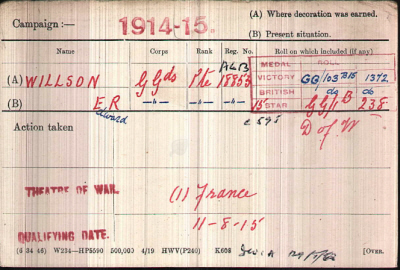 Campaign :— 1914-15. (A) Where decoration was earned.
(B) Present situation.
Name Corps Rank Reg. No. Roll on which included (if any)
MEDAL ROLL
(A) WILLSON G Gds Pte 18853 VICTORY GG/103 B15 1372
(B) E.R —"— —"— —"— BRITISH do do
Edward 15 STAR GG/1 B 238
Action taken D of W
THEATRE OF WAR. (1) France
QUALIFYING DATE. 11-8-15
(6 34 46) W234—HP5590 500,000 4/19 HWV(P240) K608 [OVER.